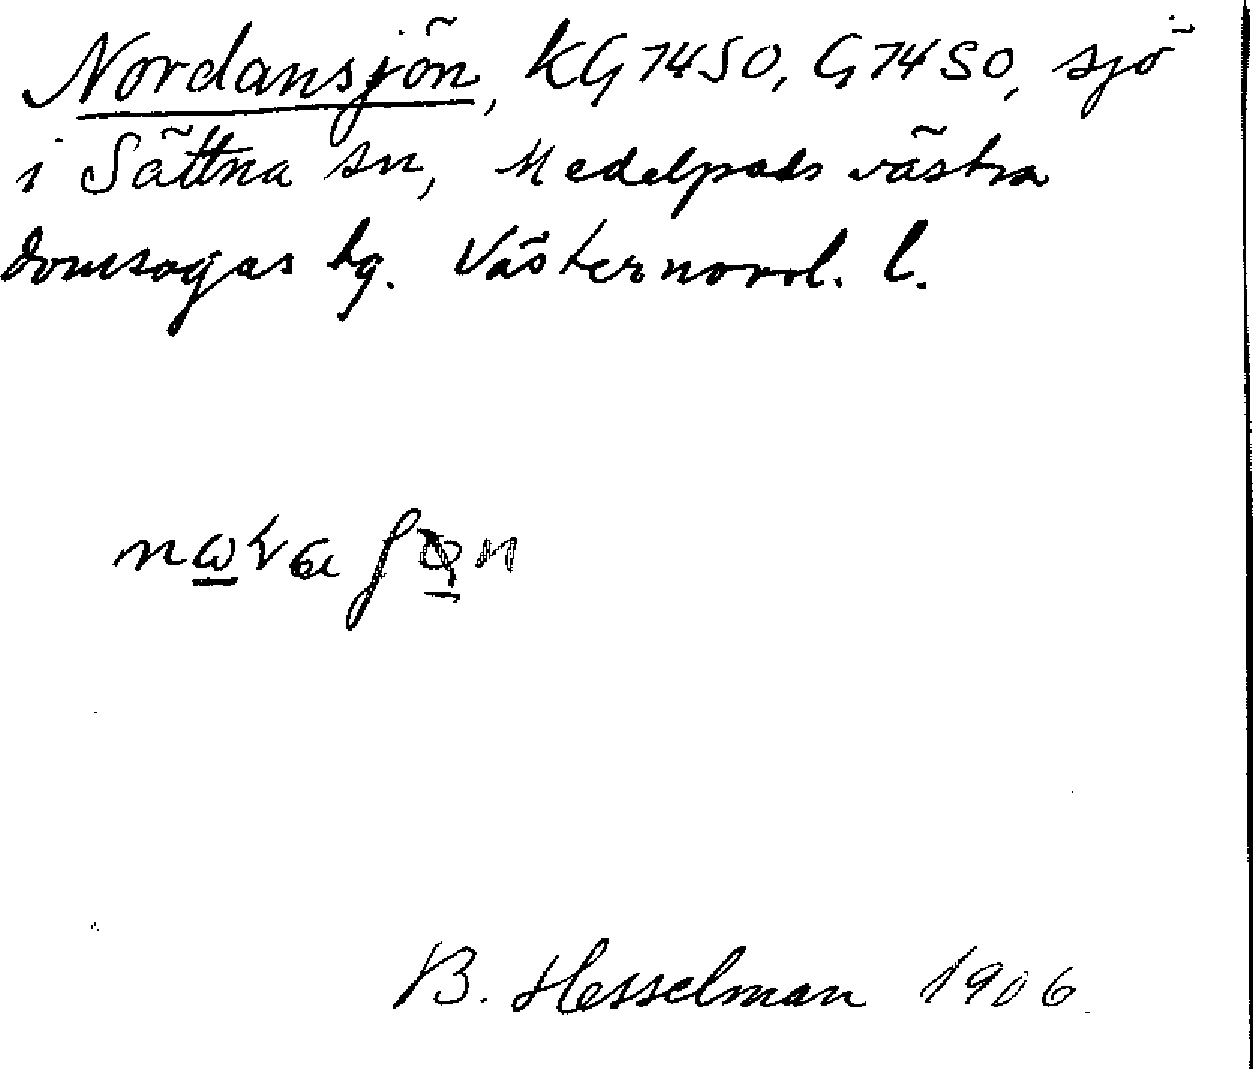 Nordansjön, KG74SO, G74SO, sjö
i Sättna sn, Medelpads västra
domsagas tg. Västernorrl. l.
B. Hesselman 1906